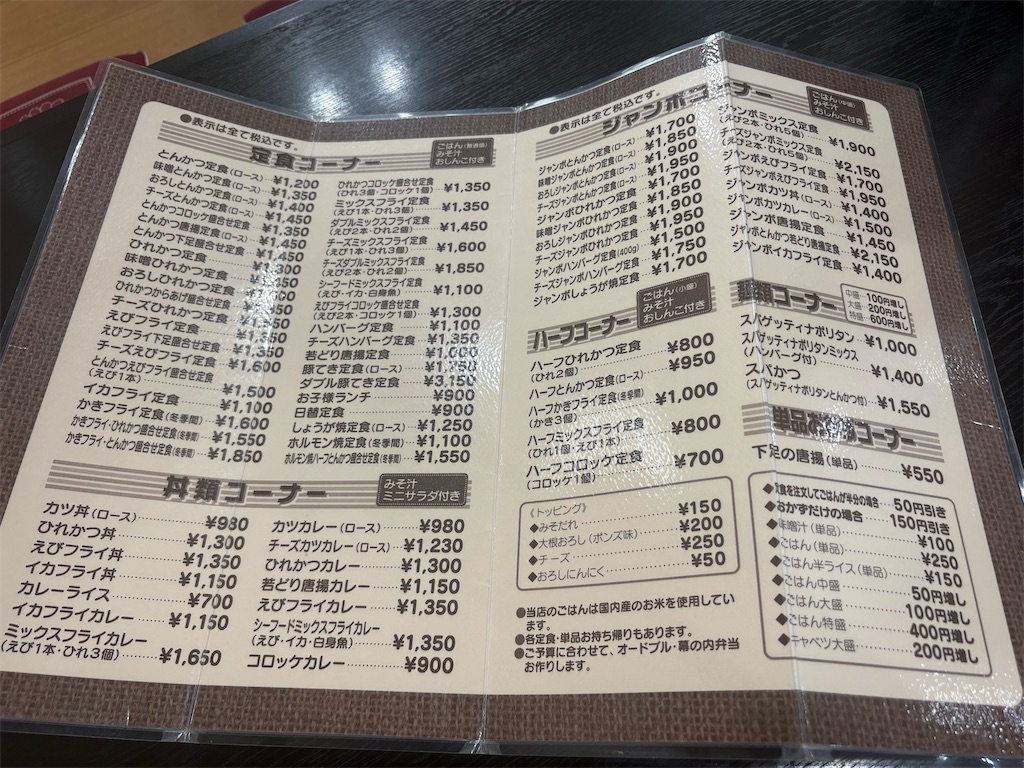 ●表示は全て税込です。
定食コーナー
ごはん(普通盛)
みそ汁
おしんこ付き
とんかつ定食(ロース) ¥1,200
味噌とんかつ定食(ロース) ¥1,350
おろしとんかつ定食(ロース) ¥1,400
チーズとんかつ定食(ロース) ¥1,450
とんかつコロッケ盛合せ定食 ¥1,350
とんかつ唐揚盛合せ定食 ¥1,450
とんかつ下足盛合せ定食
ひれかつ定食
味噌ひれかつ定食
おろしひれかつ定食
ひれかつからあげ盛合せ定食
チーズひれかつ定食
えびフライ定食
えびフライ下足盛合せ定食 ¥1,350
チーズえびフライ定食 ¥1,600
とんかつえびフライ盛合せ定食
(えび1本) ¥1,500
イカフライ定食 ¥1,100
かきフライ定食(冬季間) ¥1,600
かきフライ・ひれかつ盛合せ定食(冬季間) ¥1,550
かきフライ・とんかつ盛合せ定食(冬季間) ¥1,850
ひれかつコロッケ盛合せ定食
(ひれ3個・コロッケ1個) ¥1,350
ミックスフライ定食
(えび1本・ひれ3個) ¥1,350
ダブルミックスフライ定食
(えび2本・ひれ2個) ¥1,450
チーズミックスフライ定食
(えび1本・ひれ3個) ¥1,600
チーズダブルミックスフライ定食
(えび2本・ひれ2個) ¥1,850
シーフードミックスフライ定食
(えび・イカ・白身魚) ¥1,100
えびフライコロッケ盛合せ定食
(えび2本・コロッケ1個) ¥1,300
ハンバーグ定食 ¥1,100
チーズハンバーグ定食 ¥1,350
若どり唐揚定食 ¥1,000
豚てき定食(ロース) ¥1,750
ダブル豚てき定食 ¥3,150
お子様ランチ ¥900
日替定食 ¥900
しょうが焼定食(ロース) ¥1,250
ホルモン焼定食(冬季間) ¥1,100
ホルモン焼ハーフとんかつ盛合せ定食(冬季間) ¥1,550
丼類コーナー
みそ汁
ミニサラダ付き
カツ丼(ロース) ¥980
ひれかつ丼 ¥1,300
えびフライ丼 ¥1,350
イカフライ丼 ¥1,150
カレーライス ¥700
イカフライカレー ¥1,150
ミックスフライカレー
(えび1本・ひれ3個) ¥1,650
カツカレー(ロース) ¥980
チーズカツカレー(ロース) ¥1,230
ひれかつカレー ¥1,300
若どり唐揚カレー ¥1,150
えびフライカレー ¥1,350
シーフードミックスフライカレー
(えび・イカ・白身魚) ¥1,350
コロッケカレー ¥900
●表示は全て税込です。
ジャンボコーナー
ごはん(中盛)
みそ汁
おしんこ付き
ジャンボとんかつ定食(ロース) ¥1,700
味噌ジャンボとんかつ定食(ロース) ¥1,850
おろしジャンボとんかつ定食(ロース) ¥1,900
チーズジャンボとんかつ定食(ロース) ¥1,950
ジャンボひれかつ定食 ¥1,700
味噌ジャンボひれかつ定食 ¥1,850
おろしジャンボひれかつ定食 ¥1,900
チーズジャンボひれかつ定食 ¥1,950
ジャンボハンバーグ定食(400g) ¥1,500
チーズジャンボハンバーグ定食 ¥1,750
ジャンボしょうが焼定食 ¥1,700
ジャンボミックス定食
(えび2本・ひれ5個) ¥1,900
チーズジャンボミックス定食
(えび2本・ひれ5個) ¥2,150
ジャンボえびフライ定食 ¥1,700
チーズジャンボえびフライ定食 ¥1,950
ジャンボカツ丼(ロース) ¥1,400
ジャンボカツカレー(ロース) ¥1,500
ジャンボ唐揚定食 ¥1,450
ジャンボとんかつ若どり唐揚定食 ¥2,150
ジャンボイカフライ定食 ¥1,400
ハーフコーナー
ごはん(小盛)
みそ汁
おしんこ付き
ハーフひれかつ定食
(ひれ2個) ¥800
ハーフとんかつ定食(ロース) ¥950
ハーフかきフライ定食(冬季間)
(かき3個) ¥1,000
ハーフミックスフライ定食
(ひれ1個・えび1本) ¥800
ハーフコロッケ定食
(コロッケ1個) ¥700
《トッピング》
◆みそだれ ¥150
◆大根おろし(ポンズ味) ¥200
◆チーズ ¥250
◆おろしにんにく ¥50
●当店のごはんは国内産のお米を使用しています。
●各定食・単品お持ち帰りもあります。
●ご予算に合わせて、オードブル・幕の内弁当お作りします。
麺類コーナー
中盛…100円増し
大盛…200円増し
特盛…600円増し
スパゲッティナポリタン ¥1,000
スパゲッティナポリタンミックス
(ハンバーグ付) ¥1,400
スパかつ
(スパゲッティナポリタンとんかつ付) ¥1,550
コーナー
下足の唐揚(単品) ¥550
◆定食を注文してごはんが半分の場合 50円引き
◆おかずだけの場合 150円引き
◆味噌汁(単品) ¥100
◆ごはん(単品) ¥250
◆ごはん半ライス(単品) ¥150
◆ごはん中盛 50円増し
◆ごはん大盛 100円増し
◆ごはん特盛 400円増し
◆キャベツ大盛 200円増し